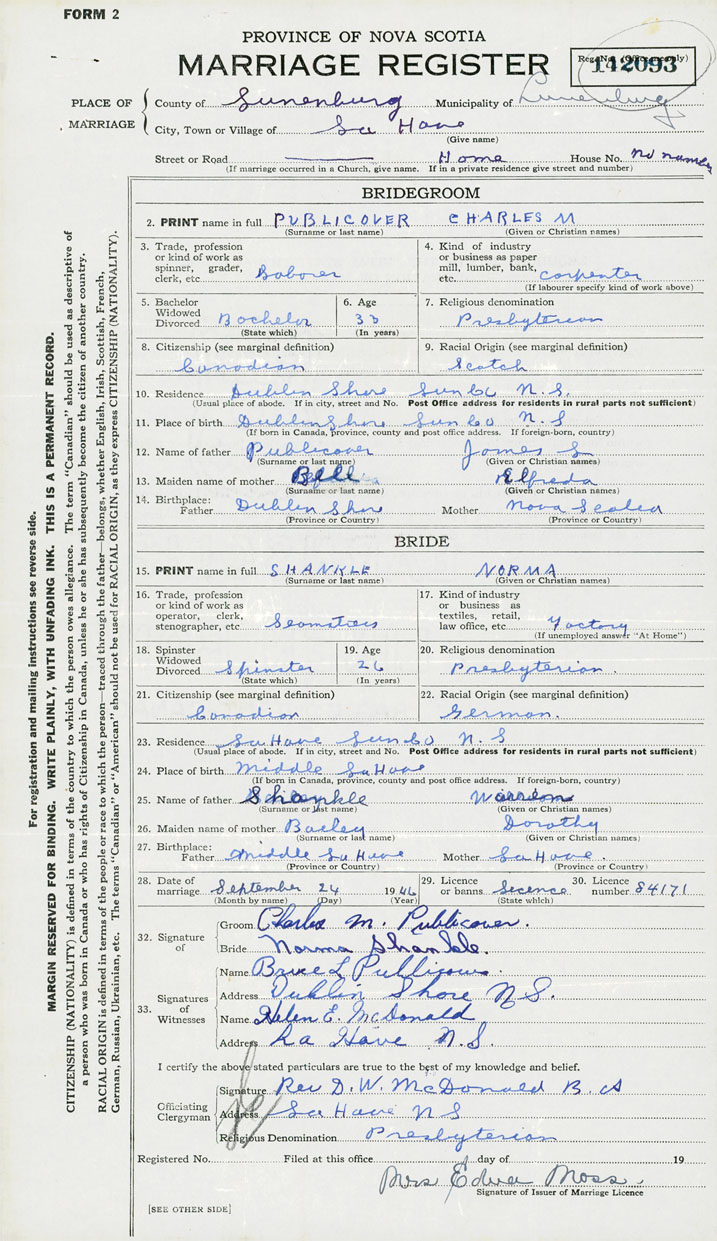 FORM 2
PROVINCE OF NOVA SCOTIA
MARRIAGE REGISTER
Reg. No. (Office use only)
142093
PLACE OF MARRIAGE
County of Lunenburg Municipality of Lunenburg
City, Town or Village of La Have
(Give name)
Street or Road Home House No. no number
(If marriage occurred in a Church, give name. If in a private residence give street and number)
BRIDEGROOM
2. PRINT name in full PUBLICOVER CHARLES M
(Surname or last name) (Given or Christian names)
3. Trade, profession or kind of work as spinner, grader, clerk, etc. Laborer
4. Kind of industry or business as paper mill, lumber, bank, etc. carpenter
(If labourer specify kind of work above)
5. Bachelor Widowed Divorced Bachelor
(State which)
6. Age 33
(In years)
7. Religious denomination Presbyterian
8. Citizenship (see marginal definition) Canadian
9. Racial Origin (see marginal definition) Scotch
10. Residence Dublin Shore Lun Co N.S.
(Usual place of abode. If in city, street and No. Post Office address for residents in rural parts not sufficient)
11. Place of birth Dublin Shore Lun Co N.S
(If born in Canada, province, county and post office address. If foreign-born, country)
12. Name of father Publicover James
(Surname or last name) (Given or Christian names)
13. Maiden name of mother Bell Elfreda
(Surname or last name) (Given or Christian names)
14. Birthplace: Father Dublin Shore Mother Nova Scotia
(Province or Country) (Province or Country)
BRIDE
15. PRINT name in full SHANKLE NORMA
(Surname or last name) (Given or Christian names)
16. Trade, profession or kind of work as operator, clerk, stenographer, etc. Seamstress
17. Kind of industry or business as textiles, retail, law office, etc. Factory
(If unemployed answer "At Home")
18. Spinster Widowed Divorced Spinster
(State which)
19. Age 26
(In years)
20. Religious denomination Presbyterian.
21. Citizenship (see marginal definition) Canadian
22. Racial Origin (see marginal definition) German.
23. Residence La Have Lun Co N.S
(Usual place of abode. If in city, street and No. Post Office address for residents in rural parts not sufficient)
24. Place of birth Middle La Have
(If born in Canada, province, county and post office address. If foreign-born, country)
25. Name of father Shankle
(Surname or last name) (Given or Christian names)
26. Maiden name of mother Dorothy
(Surname or last name) (Given or Christian names)
27. Birthplace: Father Middle La Have Mother La Have.
(Province or Country) (Province or Country)
28. Date of marriage September 24 1946
(Month by name) (Day) (Year)
29. Licence or banns Licence
(State which)
30. Licence number 84171
32. Signature of
Groom Charles M. Publicover.
Bride Norma Shankle.
33. Signatures of Witnesses
Name Bruce L Publicover.
Address Dublin Shore N.S.
Name Helen E. McDonald
Address La Have N.S.
I certify the above stated particulars are true to the best of my knowledge and belief.
Officiating Clergyman
Signature Rev D. W. McDonald B. A
Address La Have N S
Religious Denomination Presbyterian
Registered No. Filed at this office day of 19
Mrs Edna Moss.
Signature of Issuer of Marriage Licence
[SEE OTHER SIDE]
For registration and mailing instructions see reverse side.
MARGIN RESERVED FOR BINDING. WRITE PLAINLY, WITH UNFADING INK. THIS IS A PERMANENT RECORD.
CITIZENSHIP (NATIONALITY) is defined in terms of the country to which the person owes allegiance. The term "Canadian" should be used as descriptive of
a person who was born in Canada or who has rights of Citizenship in Canada, unless he or she has subsequently become the citizen of another country.
RACIAL ORIGIN is defined in terms of the people or race to which the person—traced through the father—belongs, whether English, Irish, Scottish, French,
German, Russian, Ukrainian, etc. The terms "Canadian" or "American" should not be used for RACIAL ORIGIN, as they express CITIZENSHIP (NATIONALITY).